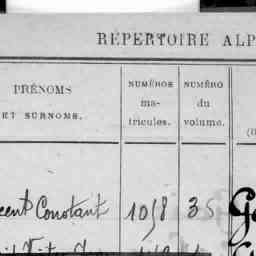 RÉPERTOIRE ALP
PRÉNOMS
ET SURNOMS.
NUMÉROS
ma-
tricules.
NUMÉRO
du
volume.
cent Constant 1058 35